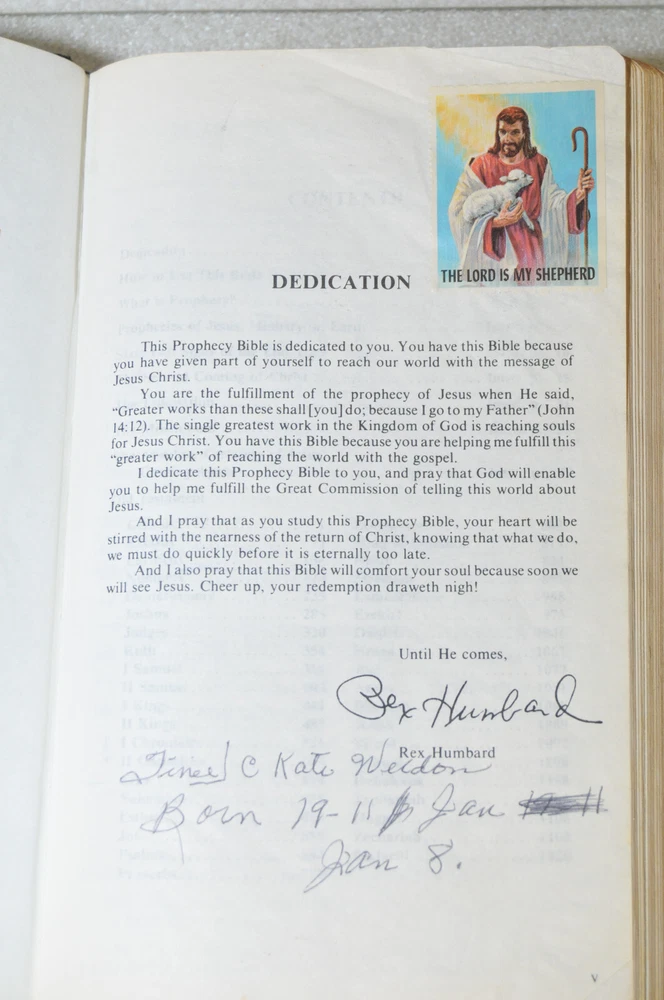 THE LORD IS MY SHEPHERD
DEDICATION
This Prophecy Bible is dedicated to you. You have this Bible because
you have given part of yourself to reach our world with the message of
Jesus Christ.
You are the fulfillment of the prophecy of Jesus when He said,
“Greater works than these shall [you] do; because I go to my Father” (John
14:12). The single greatest work in the Kingdom of God is reaching souls
for Jesus Christ. You have this Bible because you are helping me fulfill this
“greater work” of reaching the world with the gospel.
I dedicate this Prophecy Bible to you, and pray that God will enable
you to help me fulfill the Great Commission of telling this world about
Jesus.
And I pray that as you study this Prophecy Bible, your heart will be
stirred with the nearness of the return of Christ, knowing that what we do,
we must do quickly before it is eternally too late.
And I also pray that this Bible will comfort your soul because soon we
will see Jesus. Cheer up, your redemption draweth nigh!
Until He comes,
Rex Humbard
Rex Humbard
C Kate Weldon
Born 19-11 Jan
Jan 8.
v